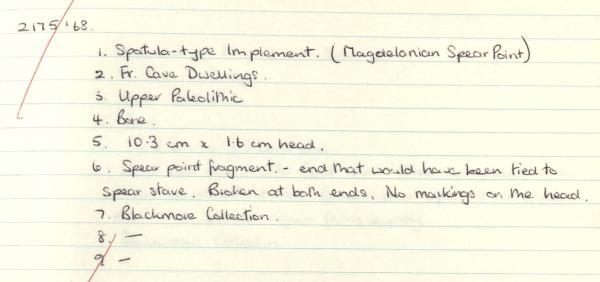 2175/'68.
1. Spatula-type Implement. (Magdelonian Spear Point)
2. Fr. Cave Dwellings.
3. Upper Paleolithic
4. Bone.
5. 10.3 cm x 1.6 cm head.
6. Spear point fragment. - end that would have been tied to
spear stave. Broken at both ends. No markings on the head.
7. Blackmore Collection.
8. —
9 —